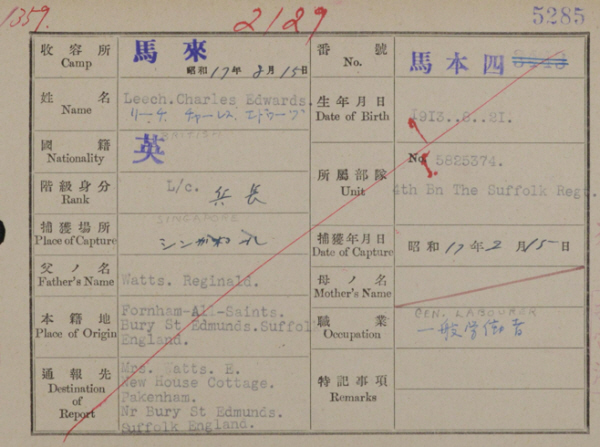 1359.
2129
5285
收容所
Camp
馬來
昭和17年8月15日
番號
No.
馬本四
姓名
Name
Leech.Charles Edwards.
リーチ チャーレス エドワーヅ
生年月日
Date of Birth
1913..8..21.
國籍
Nationality
BRITISH
英
所屬部隊
Unit
No. 5825374.
4th Bn The Suffolk Regt.
階級身分
Rank
L/c. 兵長
捕獲場所
Place of Capture
SINGAPORE
捕獲年月日
Date of Capture
昭和17年2月15日
父ノ名
Father's Name
Watts. Reginald.
母ノ名
Mother's Name
本籍地
Place of Origin
Fornham-All-Saints.
Bury St Edmunds.Suffol
England.
職業
Occupation
GEN. LABOURER
一般労働者
通報先
Destination of Report
Mrs. Watts. E.
New House Cottage.
Pakenham.
Nr Bury St Edmunds.
Suffolk England.
特記事項
Remarks